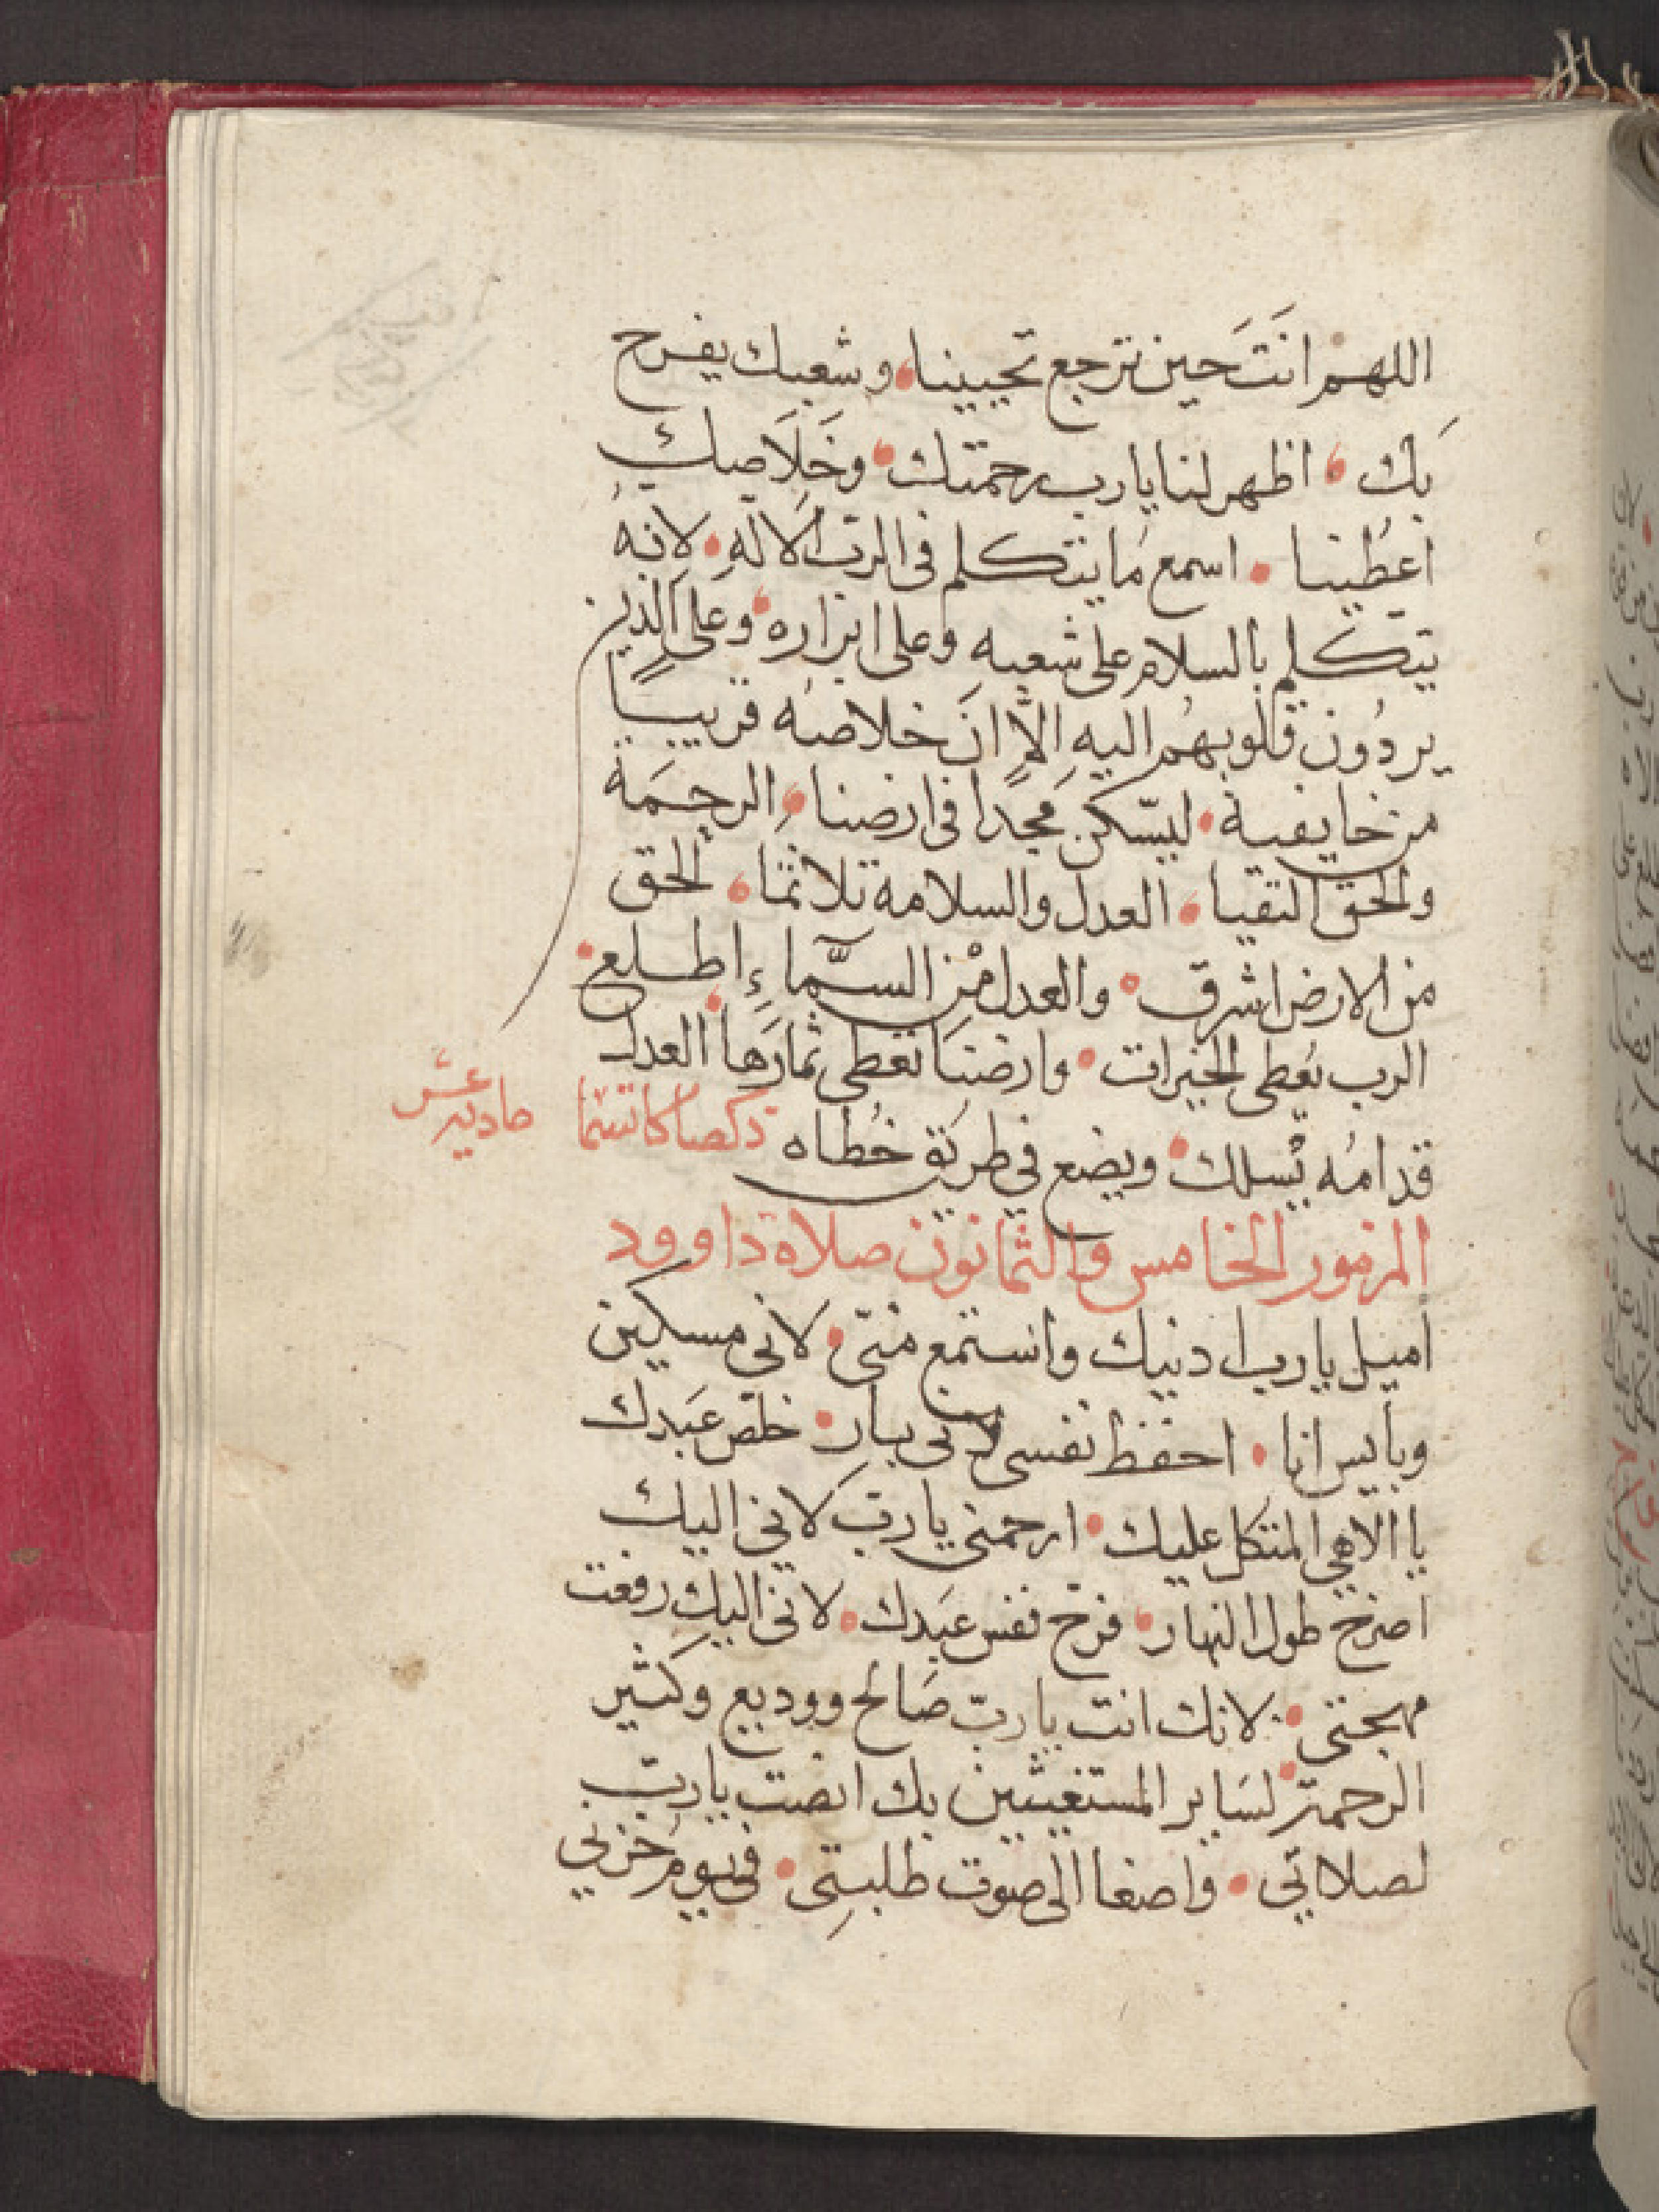 اللهم انَتَ حين ترجع تحيينا، وشعبك يفرح
بَك، اظهر لنا يا رب رحمتك، وخَلَاصك
اعطُينا، اسمع مُا يتكلم فى الرب الالهِ، لانهُ
يتكلم بالسلام على شعبهِ وعلى ابراره، وعلى الذين
يردُون قلوبهُم اليهِ اِلَّا انَ خلاصهُ قريبًا
من خايفيهَ، ليسّكن مجدًا فى ارضنا، الرحمَة
والحق التقيا، العدل والسلامة تلاثما، الحق
من الارض اشرق، والعدل مْن السَّماءِ إطلع،
الرب يُعطى الخيرات، وارضنَا تعطى ثمارَها، العدل
قدامُه يْسلك، ويضع في طريق خُطاه تركصا كاتسّما حادية عشر
المزمور الخامس والثمانون صلاة داوود
اميل يا رب ادنيك واستمع منّى، لانى مسكين
وبايس انا، احفظ نفسى لانى بار، خلّص عَبدك
يا الاهي المتكل عليك، ارحمنى يا ربّ لانى اليك
اصرخ طول النهار، فرّح نفس عبَدك، لانى اليك رفعت
مهجتى، لانك انت يا ربّ صَالح ووديع وكثَير
الرحمة، لسَاير المستغيثين بك انصت يا ربّ
لصلاتي، واصغا الى صوت طلبتِى، فى يومُ حزني